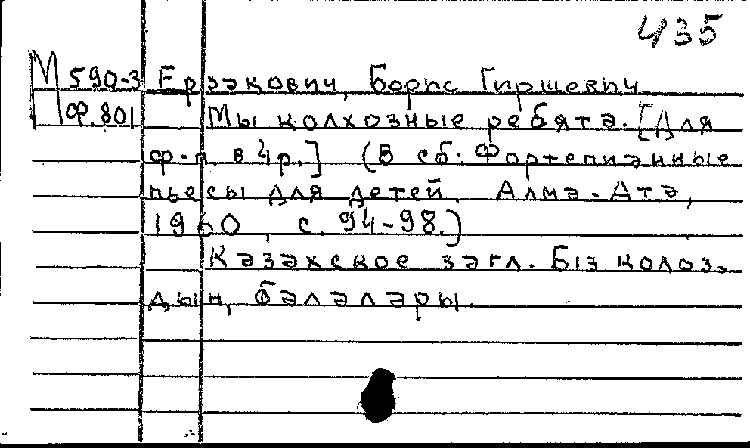 435
М 590-3 Ерзакович, Борис Гиршевич
Ф.801 Мы колхозные ребята. [Для
ф-п. в 4р.] (В сб: Фортепианные
пьесы для детей. Алма-Ата,
1960, с. 94-98.)
Казахское загл. Бiз колоз-
дын, балалары.